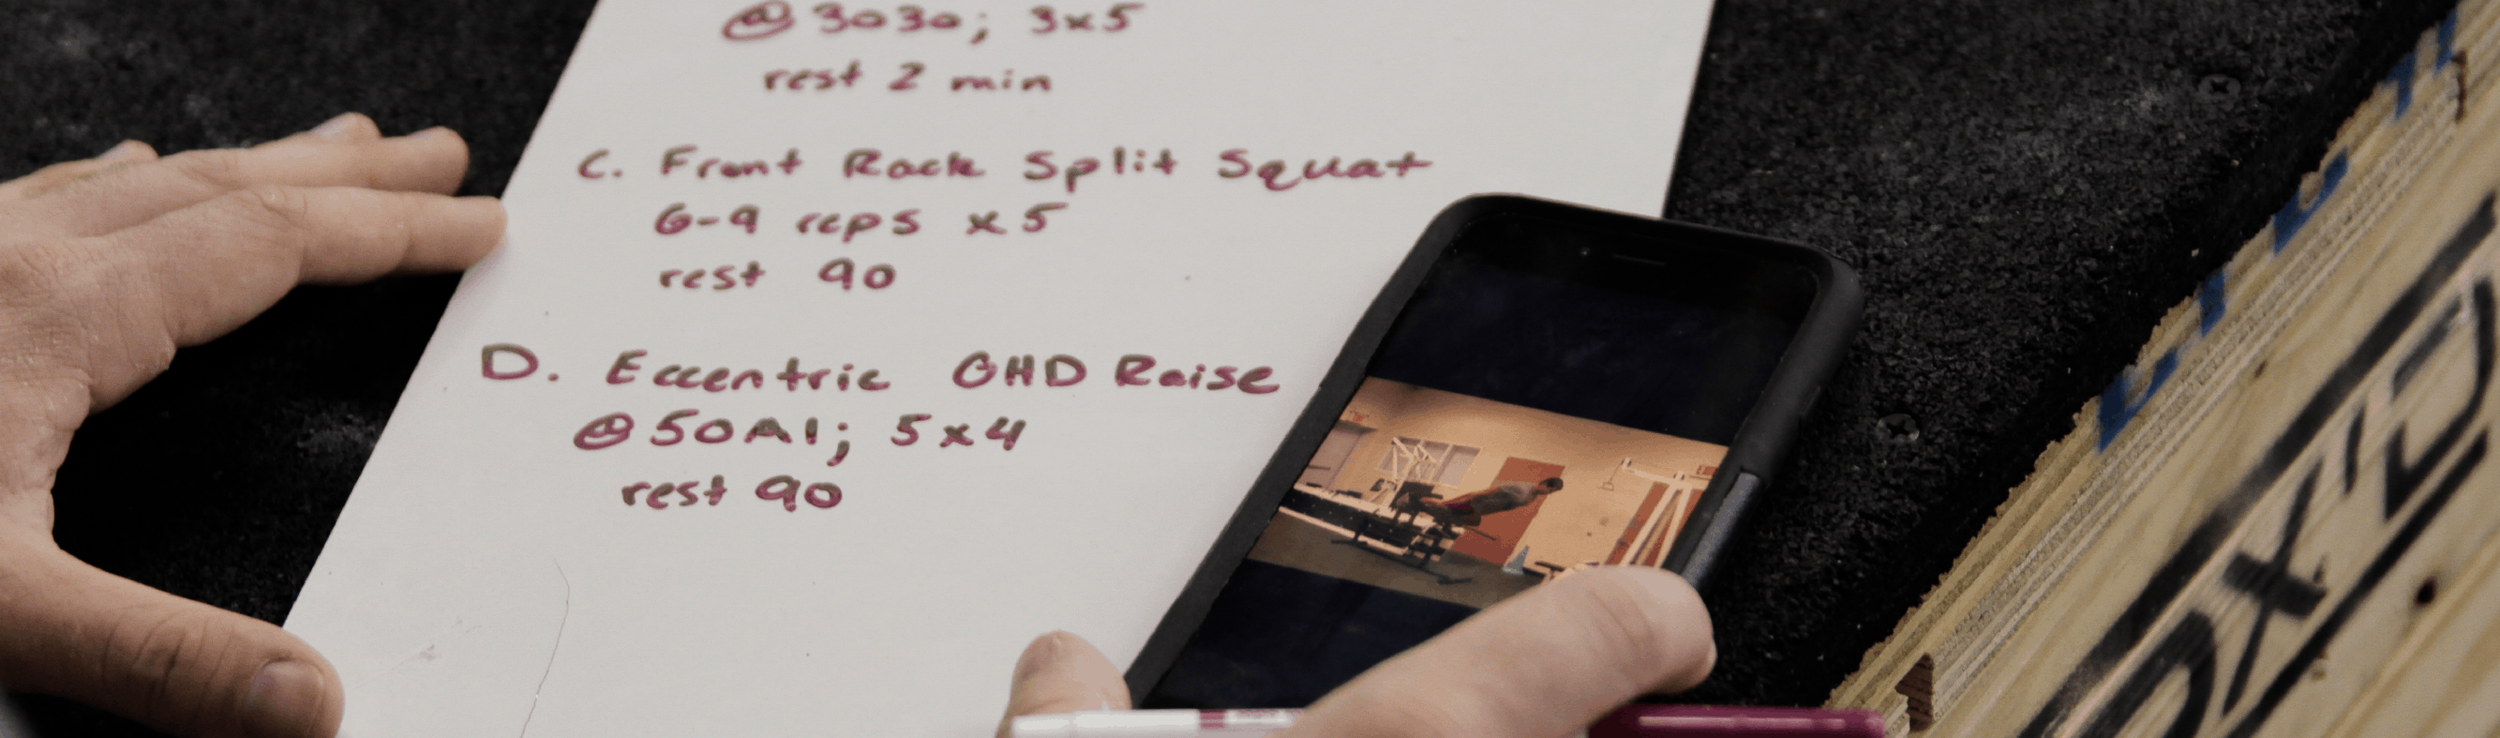 @ 3030; 3x5
rest 2 min
C. Front Rack Split Squat
6-9 reps x5
rest 90
D. Eccentric GHD Raise
@ 50A1; 5x4
rest 90